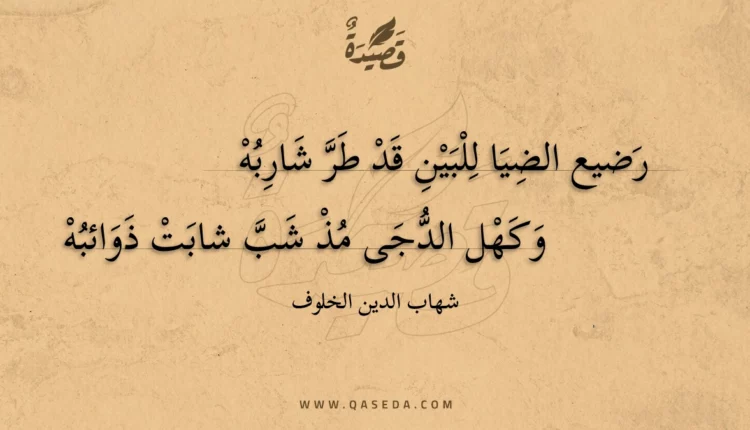 قَصِيدَةٌ
رَضيع الضِيَا لِلْبَيْنِ قَدْ طَرَّ شَارِبُهْ
وَكَهْل الدُّجَى مُذْ شَبَّ شابَتْ ذَوَائبُهْ
شهاب الدين الخلوف
WWW.QASEDA.COM